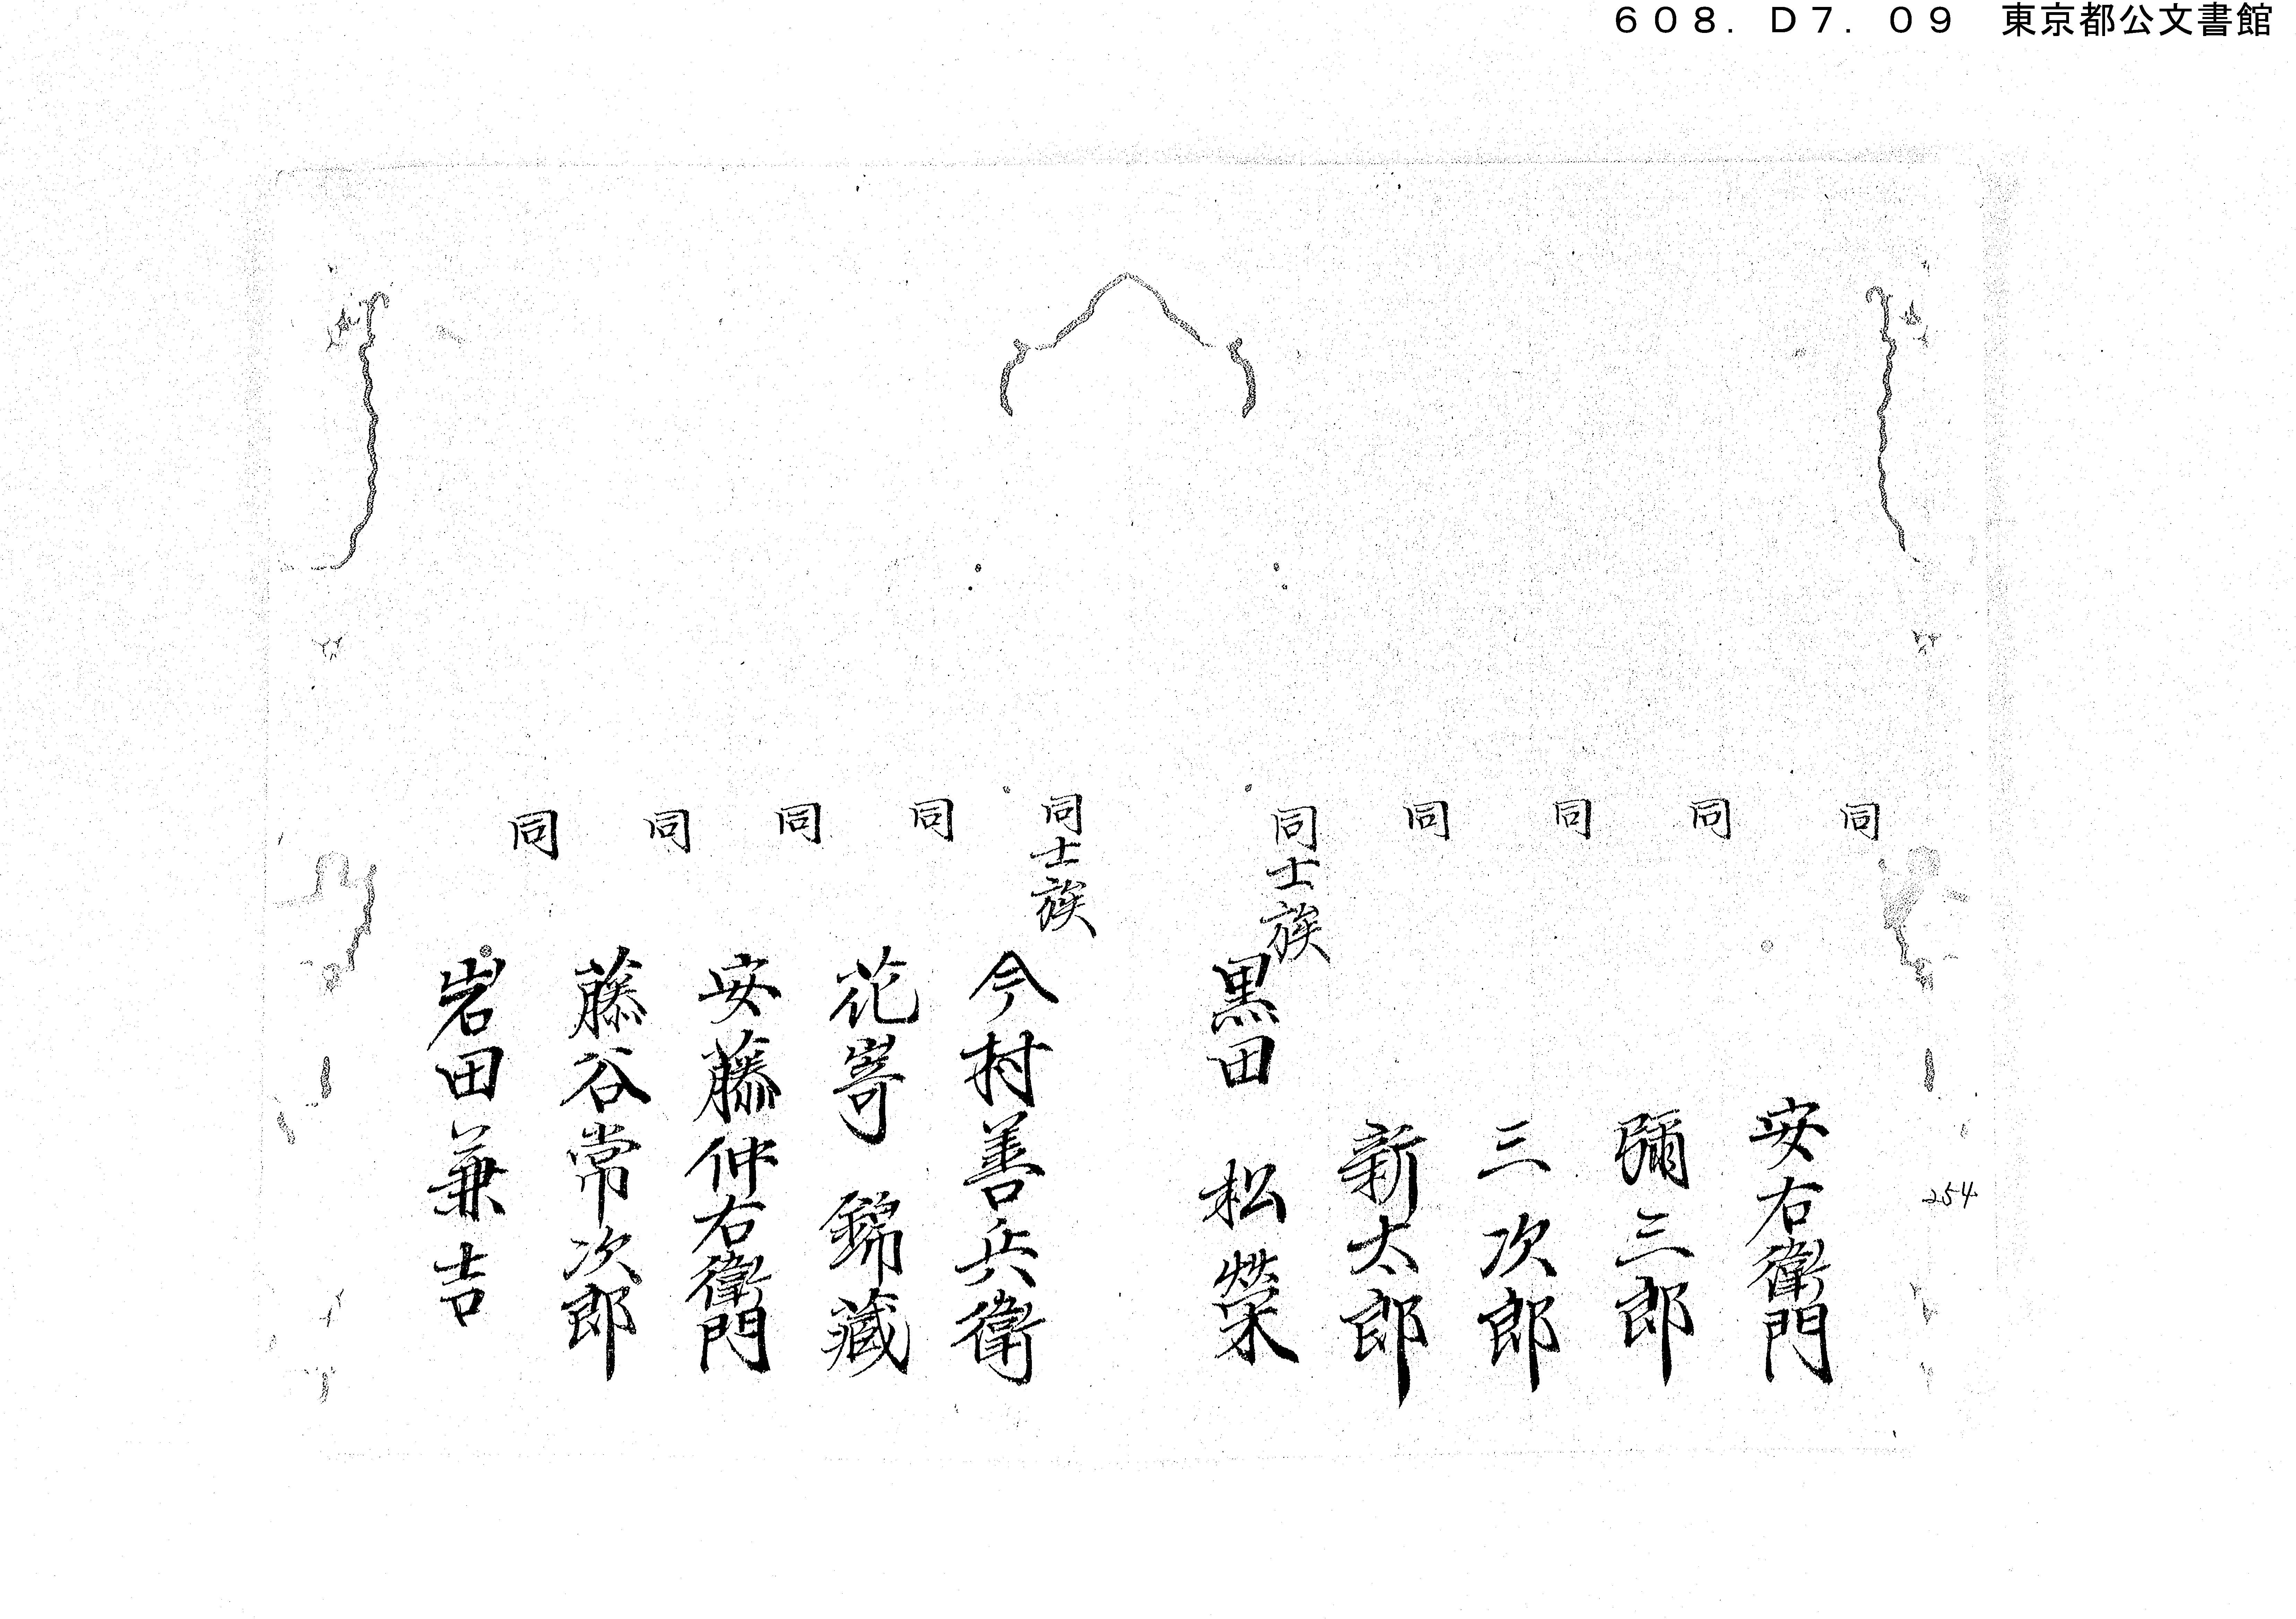 ６０８．Ｄ７．０９　東京都公文書館
同　安右衛門
254
同　彌三郎
同　三次郎
同　新太郎
同士族　黒田松榮
同士族　今村善兵衛
同　花嵜錦藏
同　安藤仲右衛門
同　藤谷常次郎
同　岩田兼吉